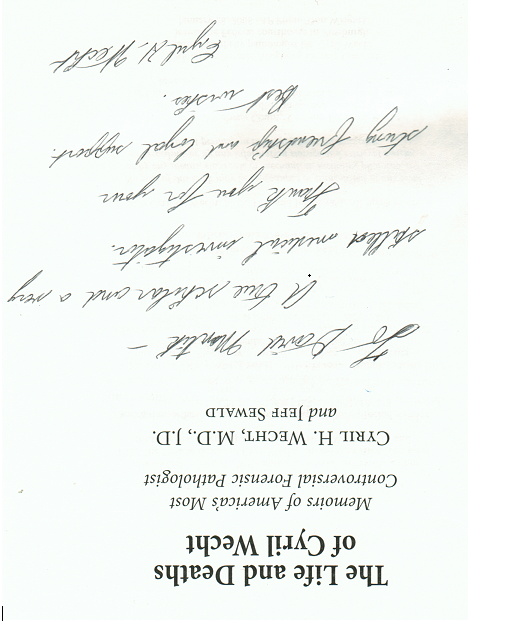 The Life and Deaths
of Cyril Wecht
Memoirs of America's Most
Controversial Forensic Pathologist
CYRIL H. WECHT, M.D., J.D.
and JEFF SEWALD
To David Mantik –
A true scholar and a very
skilled medical investigator.
Thank you for your
strong friendship and loyal support.
Best wishes.
Cyril H. Wecht